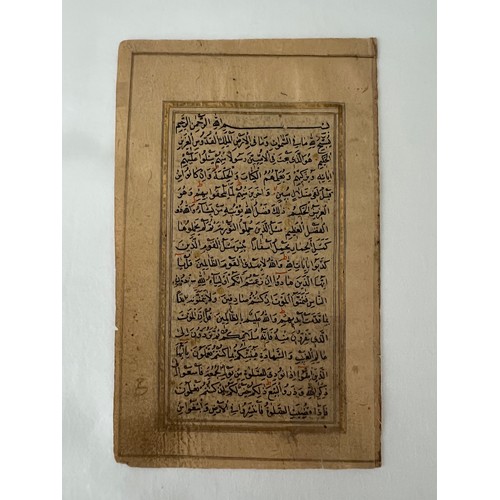 بسم الله الرحمن الرحيم
يُسَبِّحُ لِلّٰهِ مَا فِي السَّمٰوَاتِ وَمَا فِي الْاَرْضِ الْمَلِكِ الْقُدُّوسِ الْعَزِيزِ
الْحَكِيمِ هُوَ الَّذِي بَعَثَ فِي الْاُمِّيِّينَ رَسُولًا مِنْهُمْ يَتْلُوا عَلَيْهِمْ
اٰيَاتِهِ وَيُزَكِّيهِمْ وَيُعَلِّمُهُمُ الْكِتَابَ وَالْحِكْمَةَ وَاِنْ كَانُوا مِنْ
قَبْلُ لَفِي ضَلَالٍ مُبِينٍ وَاٰخَرِينَ مِنْهُمْ لَمَّا يَلْحَقُوا بِهِمْ وَهُوَ
الْعَزِيزُ الْحَكِيمُ ذٰلِكَ فَضْلُ اللّٰهِ يُؤْتِيهِ مَنْ يَشَاءُ وَاللّٰهُ ذُو
الْفَضْلِ الْعَظِيمِ مَثَلُ الَّذِينَ حُمِّلُوا التَّوْرٰيةَ ثُمَّ لَمْ يَحْمِلُوهَا
كَمَثَلِ الْحِمَارِ يَحْمِلُ اَسْفَارًا بِئْسَ مَثَلُ الْقَوْمِ الَّذِينَ
كَذَّبُوا بِاٰيَاتِ اللّٰهِ وَاللّٰهُ لَا يَهْدِي الْقَوْمَ الظَّالِمِينَ قُلْ يَا
اَيُّهَا الَّذِينَ هَادُوا اِنْ زَعَمْتُمْ اَنَّكُمْ اَوْلِيَاءُ لِلّٰهِ مِنْ دُونِ
النَّاسِ فَتَمَنَّوُا الْمَوْتَ اِنْ كُنْتُمْ صَادِقِينَ وَلَا يَتَمَنَّوْنَهُ اَبَدًا
بِمَا قَدَّمَتْ اَيْدِيهِمْ وَاللّٰهُ عَلِيمٌ بِالظَّالِمِينَ قُلْ اِنَّ الْمَوْتَ
الَّذِي تَفِرُّونَ مِنْهُ فَاِنَّهُ مُلَاقِيكُمْ ثُمَّ تُرَدُّونَ اِلٰى
عَالِمِ الْغَيْبِ وَالشَّهَادَةِ فَيُنَبِّئُكُمْ بِمَا كُنْتُمْ تَعْمَلُونَ يَا اَيُّهَا
الَّذِينَ اٰمَنُوا اِذَا نُودِيَ لِلصَّلٰوةِ مِنْ يَوْمِ الْجُمُعَةِ فَاسْعَوْا اِلٰى
ذِكْرِ اللّٰهِ وَذَرُوا الْبَيْعَ ذٰلِكُمْ خَيْرٌ لَكُمْ اِنْ كُنْتُمْ تَعْلَمُونَ
فَاِذَا قُضِيَتِ الصَّلٰوةُ فَانْتَشِرُوا فِي الْاَرْضِ وَابْتَغُوا مِنْ